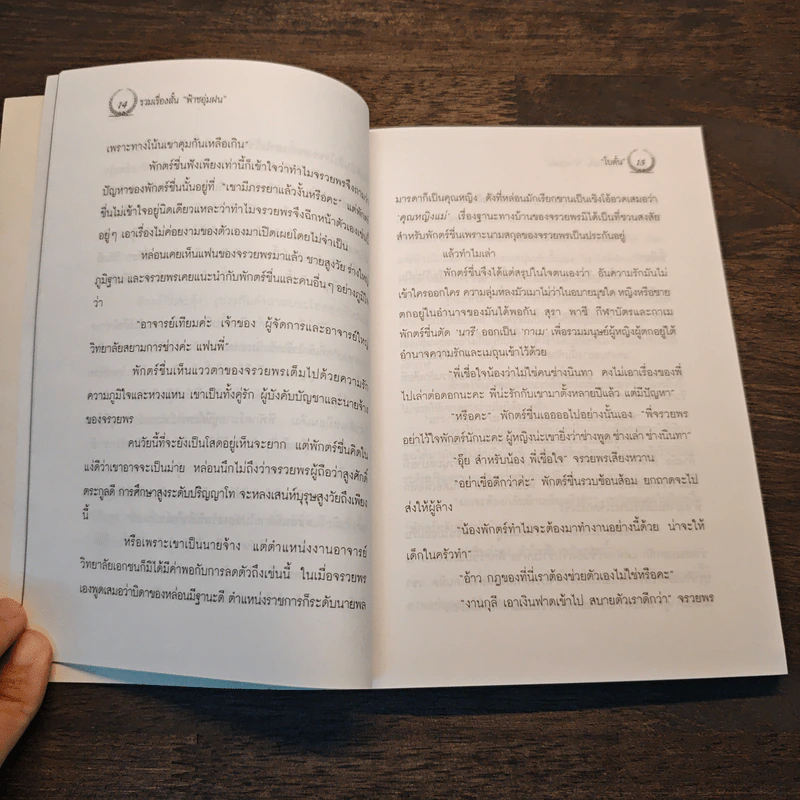 14 รวมเรื่องสั้น "ฟ้าชอุ่มฝน"
เพราะทางโน้นเขาคุมกันเหลือเกิน"
พักตร์ชื่นฟังเพียงเท่านี้ก็เข้าใจว่าทำไมจรวยพรจึงถามว่า
ปัญหาของพักตร์ชื่นนั้นอยู่ที่ "เขามีภรรยาแล้วงั้นหรือคะ" แต่พักตร์
ชื่นไม่เข้าใจอยู่นิดเดียวแหละว่าทำไมจรวยพรจึงฉีกหน้าตัวเองเช่นนี้
อยู่ๆ เอาเรื่องไม่ค่อยงามของตัวเองมาเปิดเผยโดยไม่จำเป็น
หล่อนเคยเห็นแฟนของจรวยพรมาแล้ว ชายสูงวัย ร่างใหญ่
ภูมิฐาน และจรวยพรเคยแนะนำกับพักตร์ชื่นและคนอื่นๆ อย่างภูมิใจ
ว่า
"อาจารย์เทียมค่ะ เจ้าของ ผู้จัดการและอาจารย์ใหญ่
วิทยาลัยสยามการช่างค่ะ แฟนพี่"
พักตร์ชื่นเห็นแววตาของจรวยพรเต็มไปด้วยความรัก
ความภูมิใจและหวงแหน เขาเป็นทั้งคู่รัก ผู้บังคับบัญชาและนายจ้าง
ของจรวยพร
คนวัยนี้ที่จะยังเป็นโสดอยู่เห็นจะยาก แต่พักตร์ชื่นคิดใน
แง่ดีว่าเขาอาจจะเป็นม่าย หล่อนนึกไม่ถึงว่าจรวยพรผู้ถือว่าสูงศักดิ์
ตระกูลดี การศึกษาสูงระดับปริญญาโท จะหลงเสน่ห์บุรุษสูงวัยถึงเพียง
นี้
หรือเพราะเขาเป็นนายจ้าง แต่ตำแหน่งงานอาจารย์
วิทยาลัยเอกชนก็มิได้มีค่าพอกับการลดตัวถึงเช่นนี้ ในเมื่อจรวยพร
เองพูดเสมอว่าบิดาของหล่อนมีฐานะดี ตำแหน่งราชการก็ระดับนายพล
"ใบคั่น" 15
มารดาก็เป็นคุณหญิง ดังที่หล่อนมักเรียกขานเป็นเชิงโอ้อวดเสมอว่า
'คุณหญิงแม่' เรื่องฐานะทางบ้านของจรวยพรมิได้เป็นที่ชวนสงสัย
สำหรับพักตร์ชื่นเพราะนามสกุลของจรวยพรเป็นประกันอยู่
แล้วทำไมเล่า
พักตร์ชื่นจึงได้แต่สรุปในใจตนเองว่า อันความรักมันไม่
เข้าใครออกใคร ความลุ่มหลงมัวเมาไม่ว่าในอบายมุขใด หญิงหรือชาย
ตกอยู่ในอำนาจของมันได้พอกัน สุรา พาชี กีฬาบัตรและกาเม
พักตร์ชื่นตัด 'นารี' ออกเป็น 'กาเม' เพื่อรวมมนุษย์ผู้หญิงผู้ตกอยู่ใต้
อำนาจความรักและเมถุนเข้าไว้ด้วย
"พี่เชื่อใจน้องว่าไม่ใช่คนช่างนินทา คงไม่เอาเรื่องของพี่
ไปเล่าต่อดอกนะคะ พี่น่ะรักกับเขามาตั้งหลายปีแล้ว แต่มีปัญหา"
"หรือคะ" พักตร์ชื่นเออออไปอย่างนั้นเอง "พี่จรวยพร
อย่าไว้ใจพักตร์นักนะคะ ผู้หญิงน่ะเขายิ่งว่าช่างพูด ช่างเล่า ช่างนินทา"
"อุ๊ย สำหรับน้อง พี่เชื่อใจ" จรวยพรเสียงหวาน
"อย่าเชื่อดีกว่าค่ะ" พักตร์ชื่นรวบช้อนส้อม ยกถาดจะไป
ส่งให้ผู้ล้าง
"น้องพักตร์ทำไมจะต้องมาทำงานอย่างนี้ด้วย น่าจะให้
เด็กในครัวทำ"
"อ้าว กฎของที่นี่เราต้องช่วยตัวเองไม่ใช่หรือคะ"
"งานกุลี เอาเงินฟาดเข้าไป สบายตัวเราดีกว่า" จรวยพร